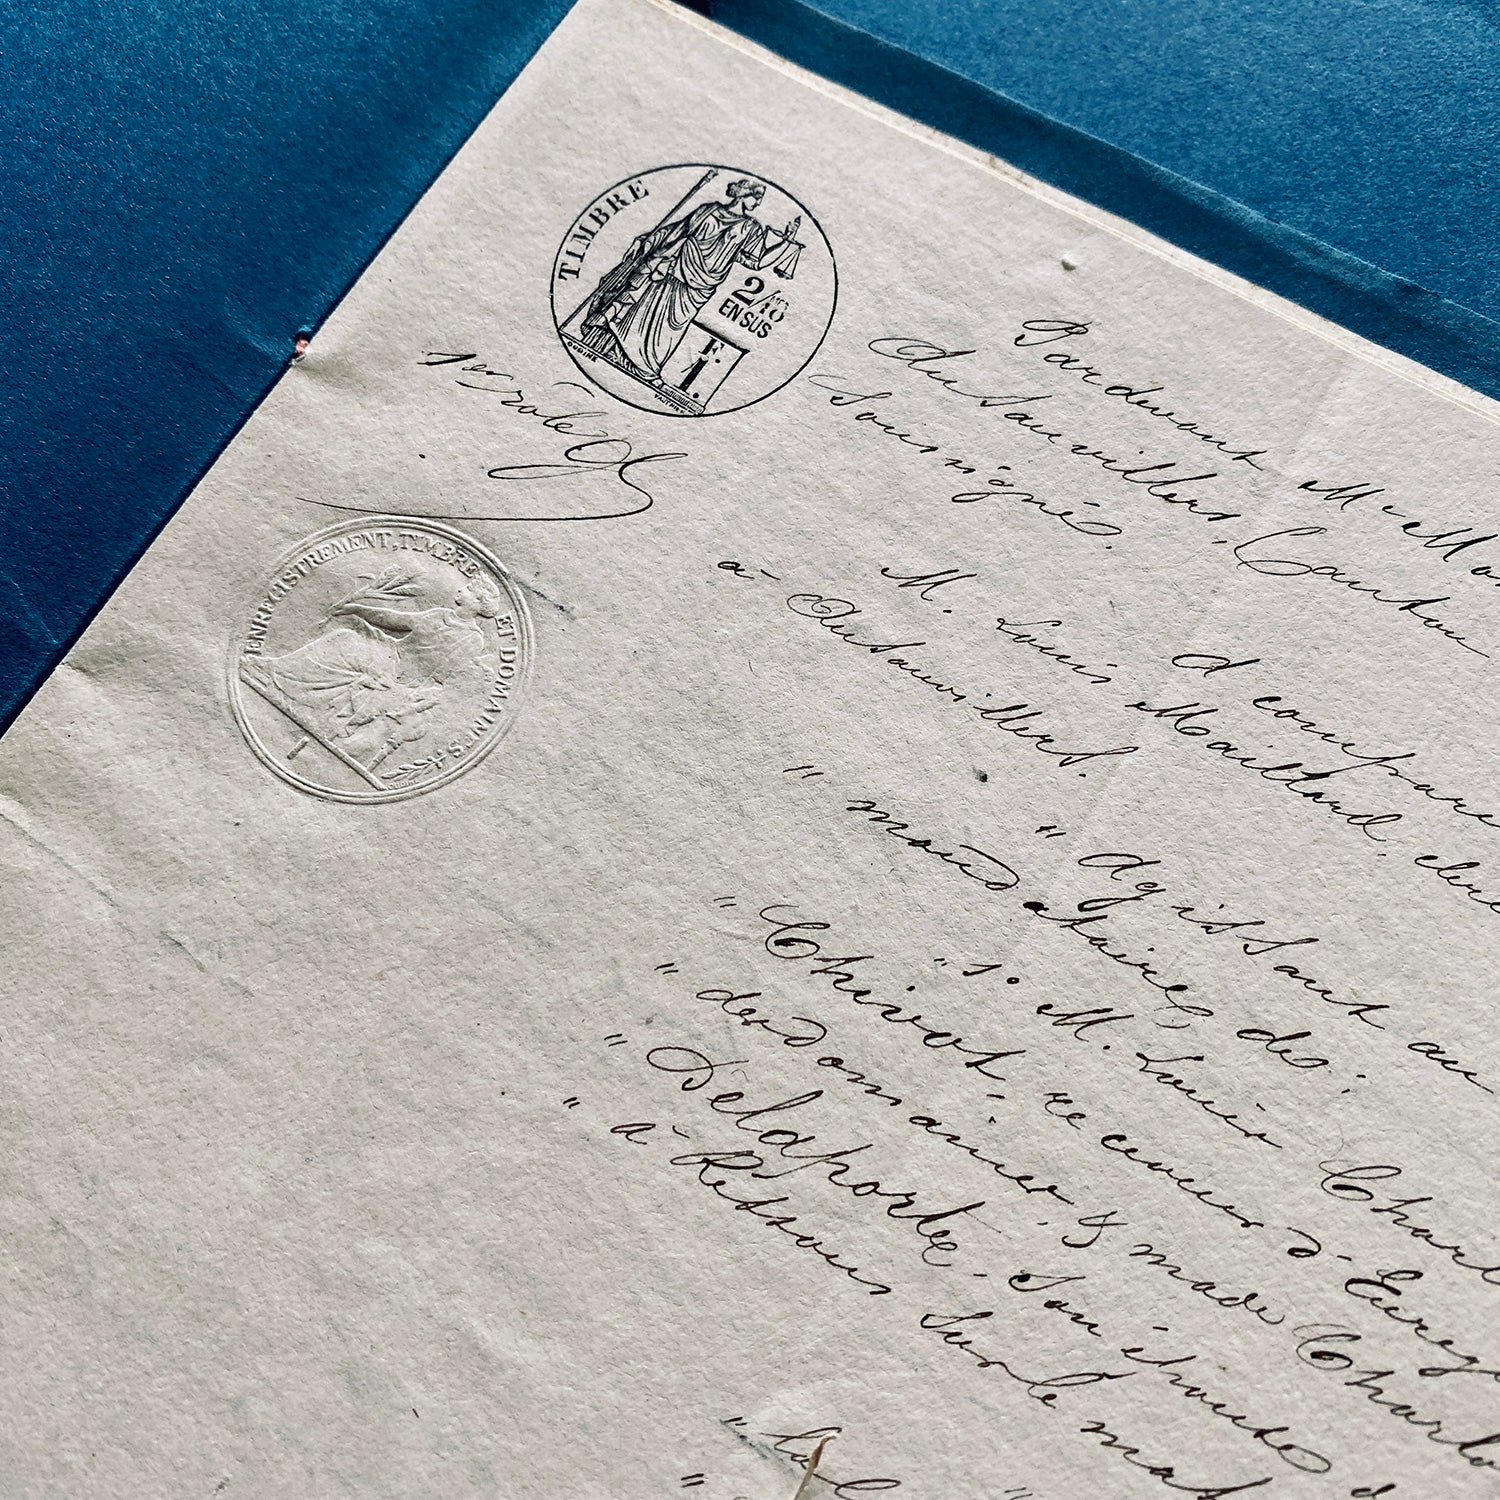 TIMBRE
2/10
EN SUS
F.
1.
OUDINÉ
1er rôle
ENREGISTREMENT, TIMBRE ET DOMAINES
Pardevant Me
Ansauvillers, Canton
Soussigné.
a comparu
M. Louis Maillard, clerc
à Ansauvillers.
" Agissant au
" mandataire de :
" 1° M. Louis Charles
" Chivot, receveur d. Enreg
" des domaines, & made Charlotte
" Delaporte, son épouse d
" à Ressons sur le mat
"
"